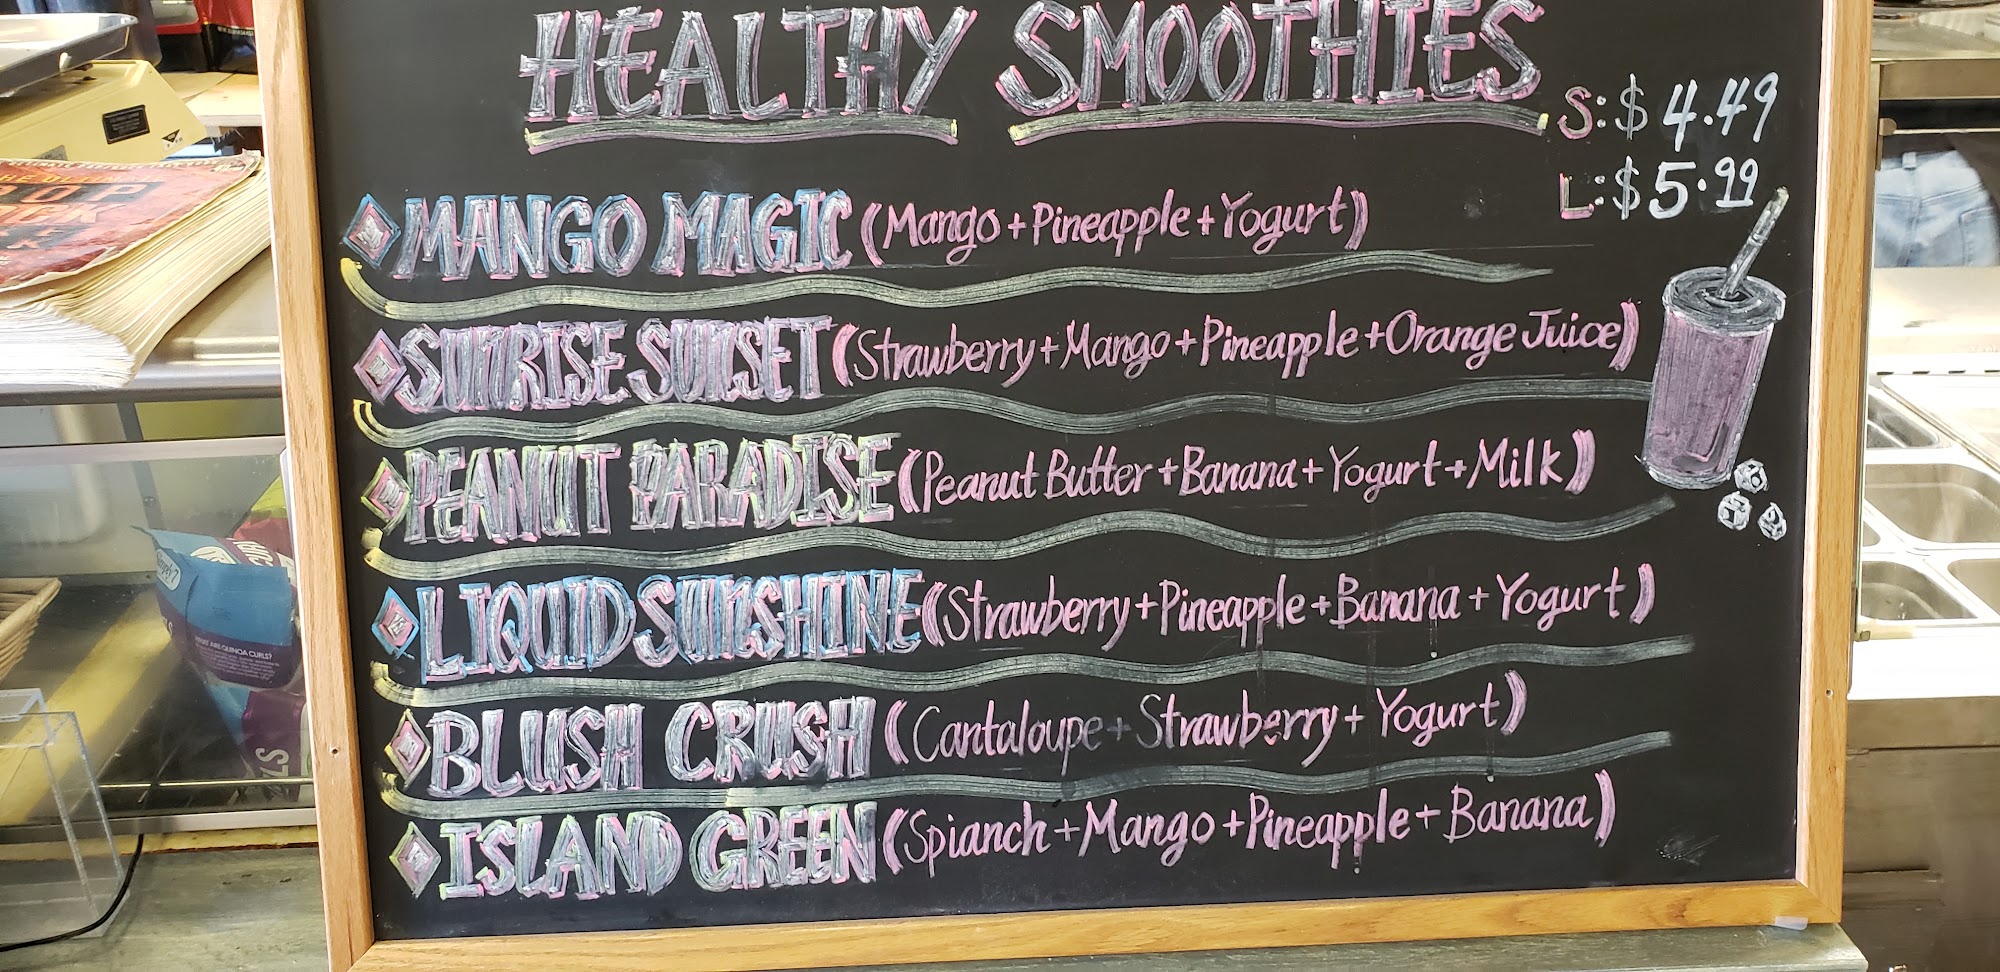 HEALTHY SMOOTHIES
S: $ 4.49
L: $ 5.99
MANGO MAGIC (Mango + Pineapple + Yogurt)
SUNRISE SUNSET (Strawberry + Mango + Pineapple + Orange Juice)
PEANUT PARADISE (Peanut Butter + Banana + Yogurt + Milk)
LIQUID SUNSHINE (Strawberry + Pineapple + Banana + Yogurt)
BLUSH CRUSH (Cantaloupe + Strawberry + Yogurt)
ISLAND GREEN (Spianch + Mango + Pineapple + Banana)
WHAT ARE QUINOA CURLS?